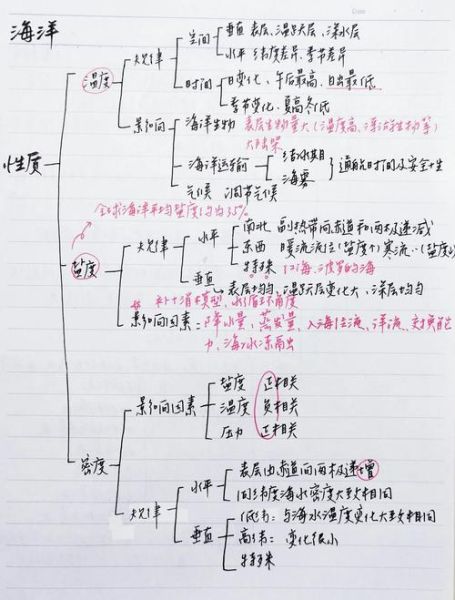 海洋
性质
温度
规律
空间
垂直 表层、温跃层、深水层
水平 纬度差异、季节差异
时间
日变化、午后最高、日出最低
季节变化、夏高冬低
影响
海洋生物 表层生物量大(温度高、浮游生物等)
海洋运输
结冰期
海雾
通航时间及安全性
气候 调节气候
全球海洋平均盐度约为35‰
盐度
规律
水平
南北 副热带向赤道和两极递减
东西 暖流流经(盐度↑)寒流…(盐度↓)
特殊 红海、波罗的海
垂直 表层均匀、温跃层变化大、深层均匀
补+消模型、水循环角度
影响因素:降水量、蒸发量、入海径流、洋流、
力、海水冻融
密度
影响因素
盐度 正相关
温度 负相关
压力 正相关
规律
水平
表层由赤道向两极递增
同纬度海水密度大致相同
垂直
低纬:与海水温度变化大致相同
高纬:变化很小
特殊